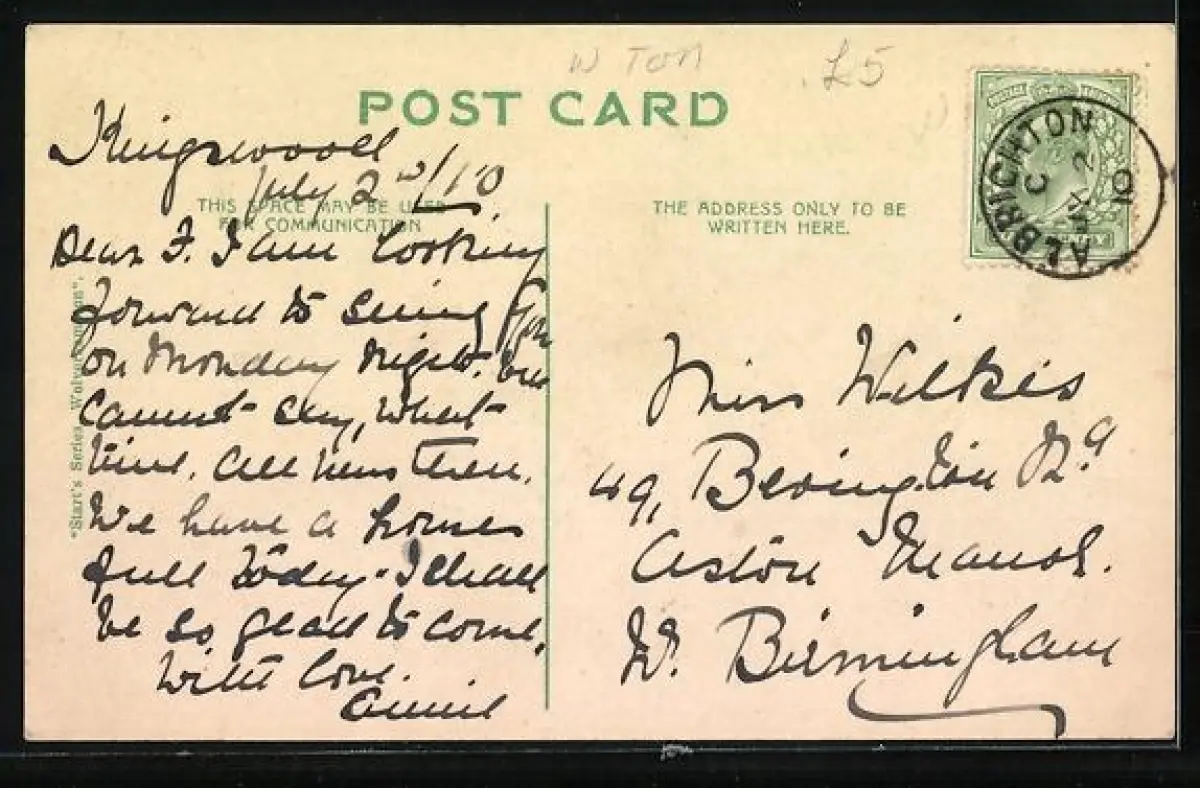 W TON
£5
POST CARD
Kingswood
July 2nd/10
THIS SPACE MAY BE USED
FOR COMMUNICATION
THE ADDRESS ONLY TO BE
WRITTEN HERE.
ALBRIGHTON
C
JY 2
10
Dear F. I am looking
forward to seeing you
on Monday night. but
cannot say, what
time. All news then.
We have a houses
full today. I shall
be so glad to come.
With love.
Annie
"Start's Series, Wolverhampton".
Miss Wilkes
49, Bevington Rd
Aston Manor.
Nr. Birmingham